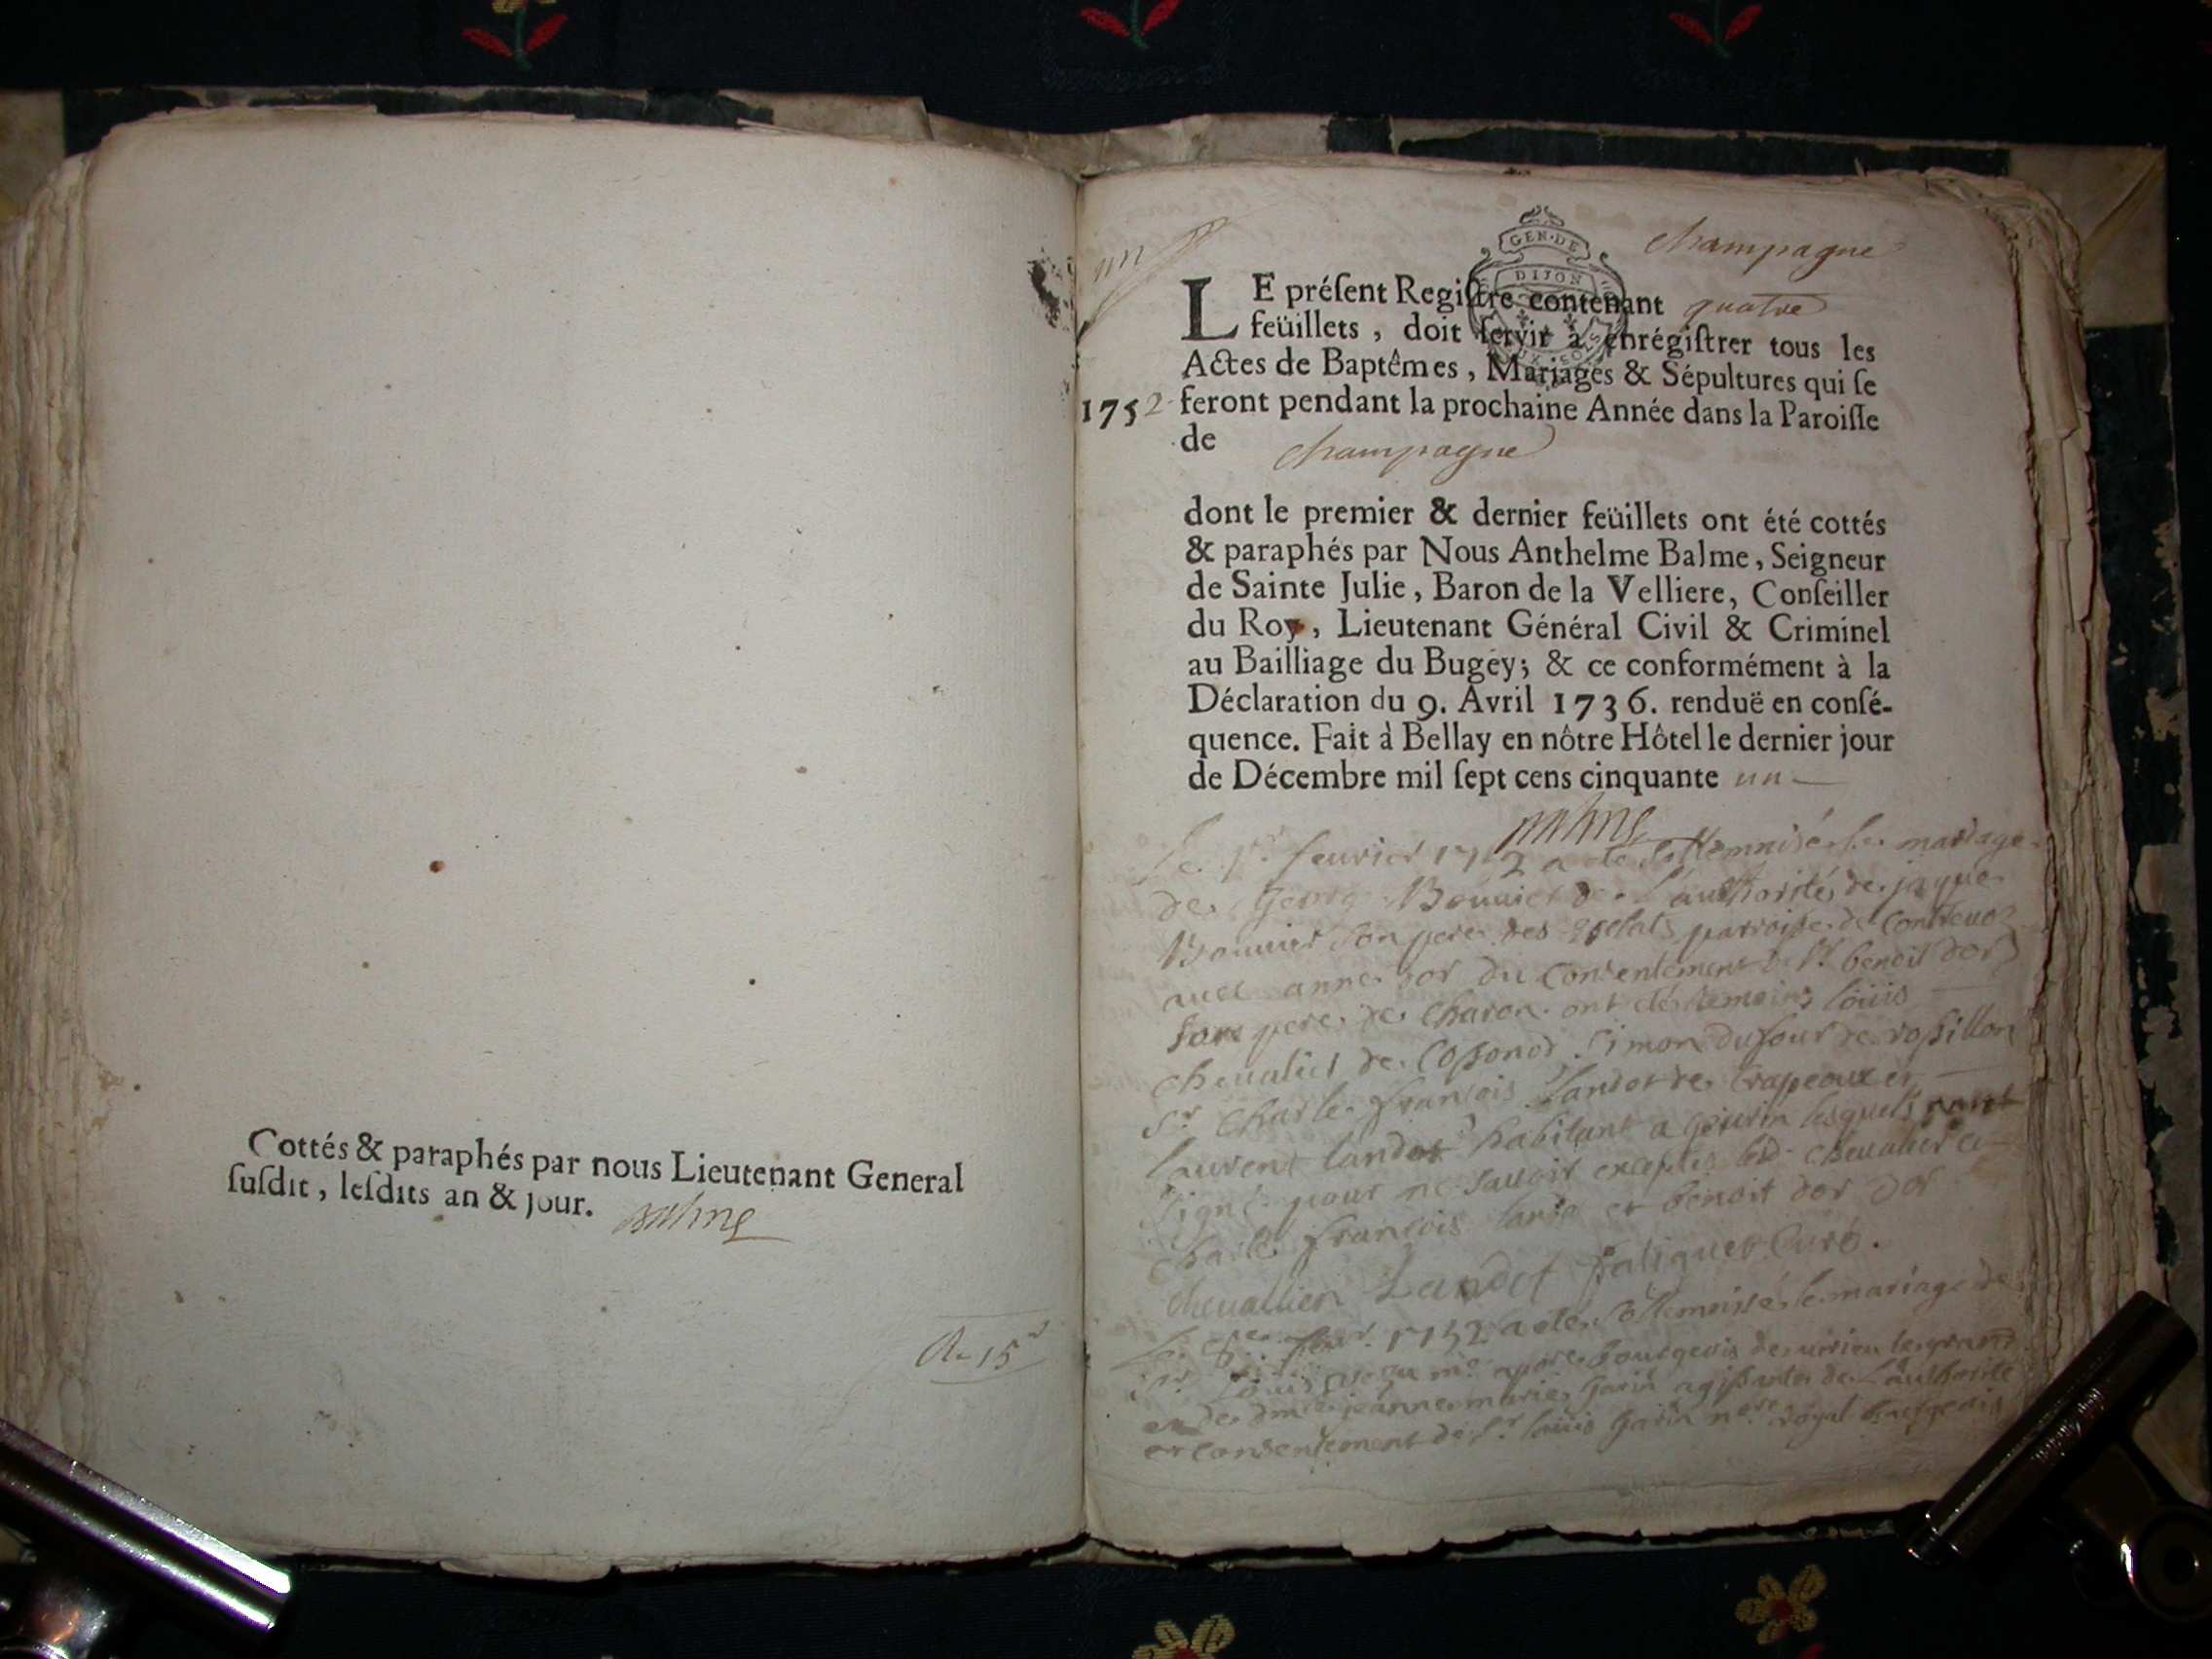 Cottés & paraphés par nous Lieutenant General
ſuſdit, leſdits an & jour. Balme
un
GEN·DE
DIJON
Champagne
LE préſent Regiſtre contenant quatre
feüillets, doit ſervir à enrégiſtrer tous les
Actes de Baptêmes, Mariages & Sépultures qui ſe
1752 feront pendant la prochaine Année dans la Paroiſſe
de Champagne
dont le premier & dernier feüillets ont été cottés
& paraphés par Nous Anthelme Balme, Seigneur
de Sainte Julie, Baron de la Velliere, Conſeiller
du Roy, Lieutenant Général Civil & Criminel
au Bailliage du Bugey; & ce conformément à la
Déclaration du 9. Avril 1736. renduë en conſé-
quence. Fait à Bellay en nôtre Hôtel le dernier jour
de Décembre mil ſept cens cinquante un
Balme
le 1r feurier 1752 a ete le mariage
de George Bouuier de l'authorité de jaque
Bouuier son pere des parroisse de
auec anne dor du consentement de Sr benoit dor
son pere de Charon ont eté temoins loüis
cheualier de simon dufour de rossillon
Sr Charle françois landot de et
laurent landot habitant a lesquels n'ont
signé pour ne sauoir exceptes led. cheualier et
Charle françois et benoit dor Dor
cheuallier Landot Curé.
le 1752 a eté le mariage de
Sr bourgeois de uirieu le grand
et de jeanne marie garin de l'authorité
et consentement de Sr loüis garin royal